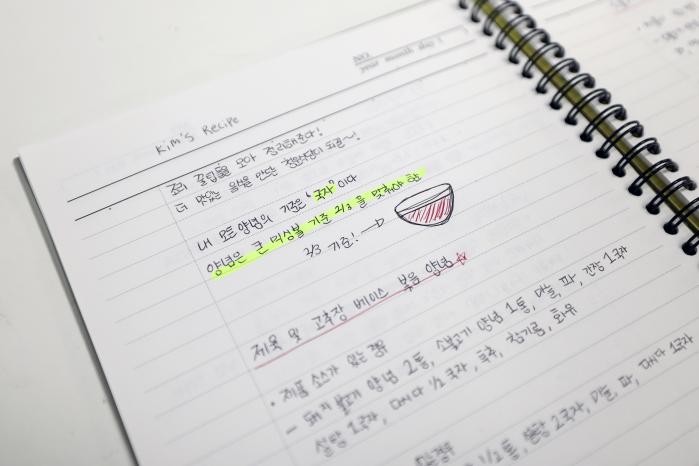 NO.
year month day
Kim's Recipe
조리 꿀팁들을 모아 정리해준다!
더 맛있는 음식을 만드는
내 모든 양념의 기준은 "국자"이다
양념은 큰 믹싱볼 기준 2/3 을 맞춰야 함
2/3 기준! →
제육 및 고추장 베이스 볶음 양념
• 제품 소스가 있는 경우
- 돼지 불고기 양념 2통, 소불고기 양념 1통, 마늘, 파, 간장 1국자
설탕 1국자, 다시다 1/2 국자, 후추, 참기름, 화유
1/2통, 설탕 2국자, 마늘, 파, 다시다 1국자